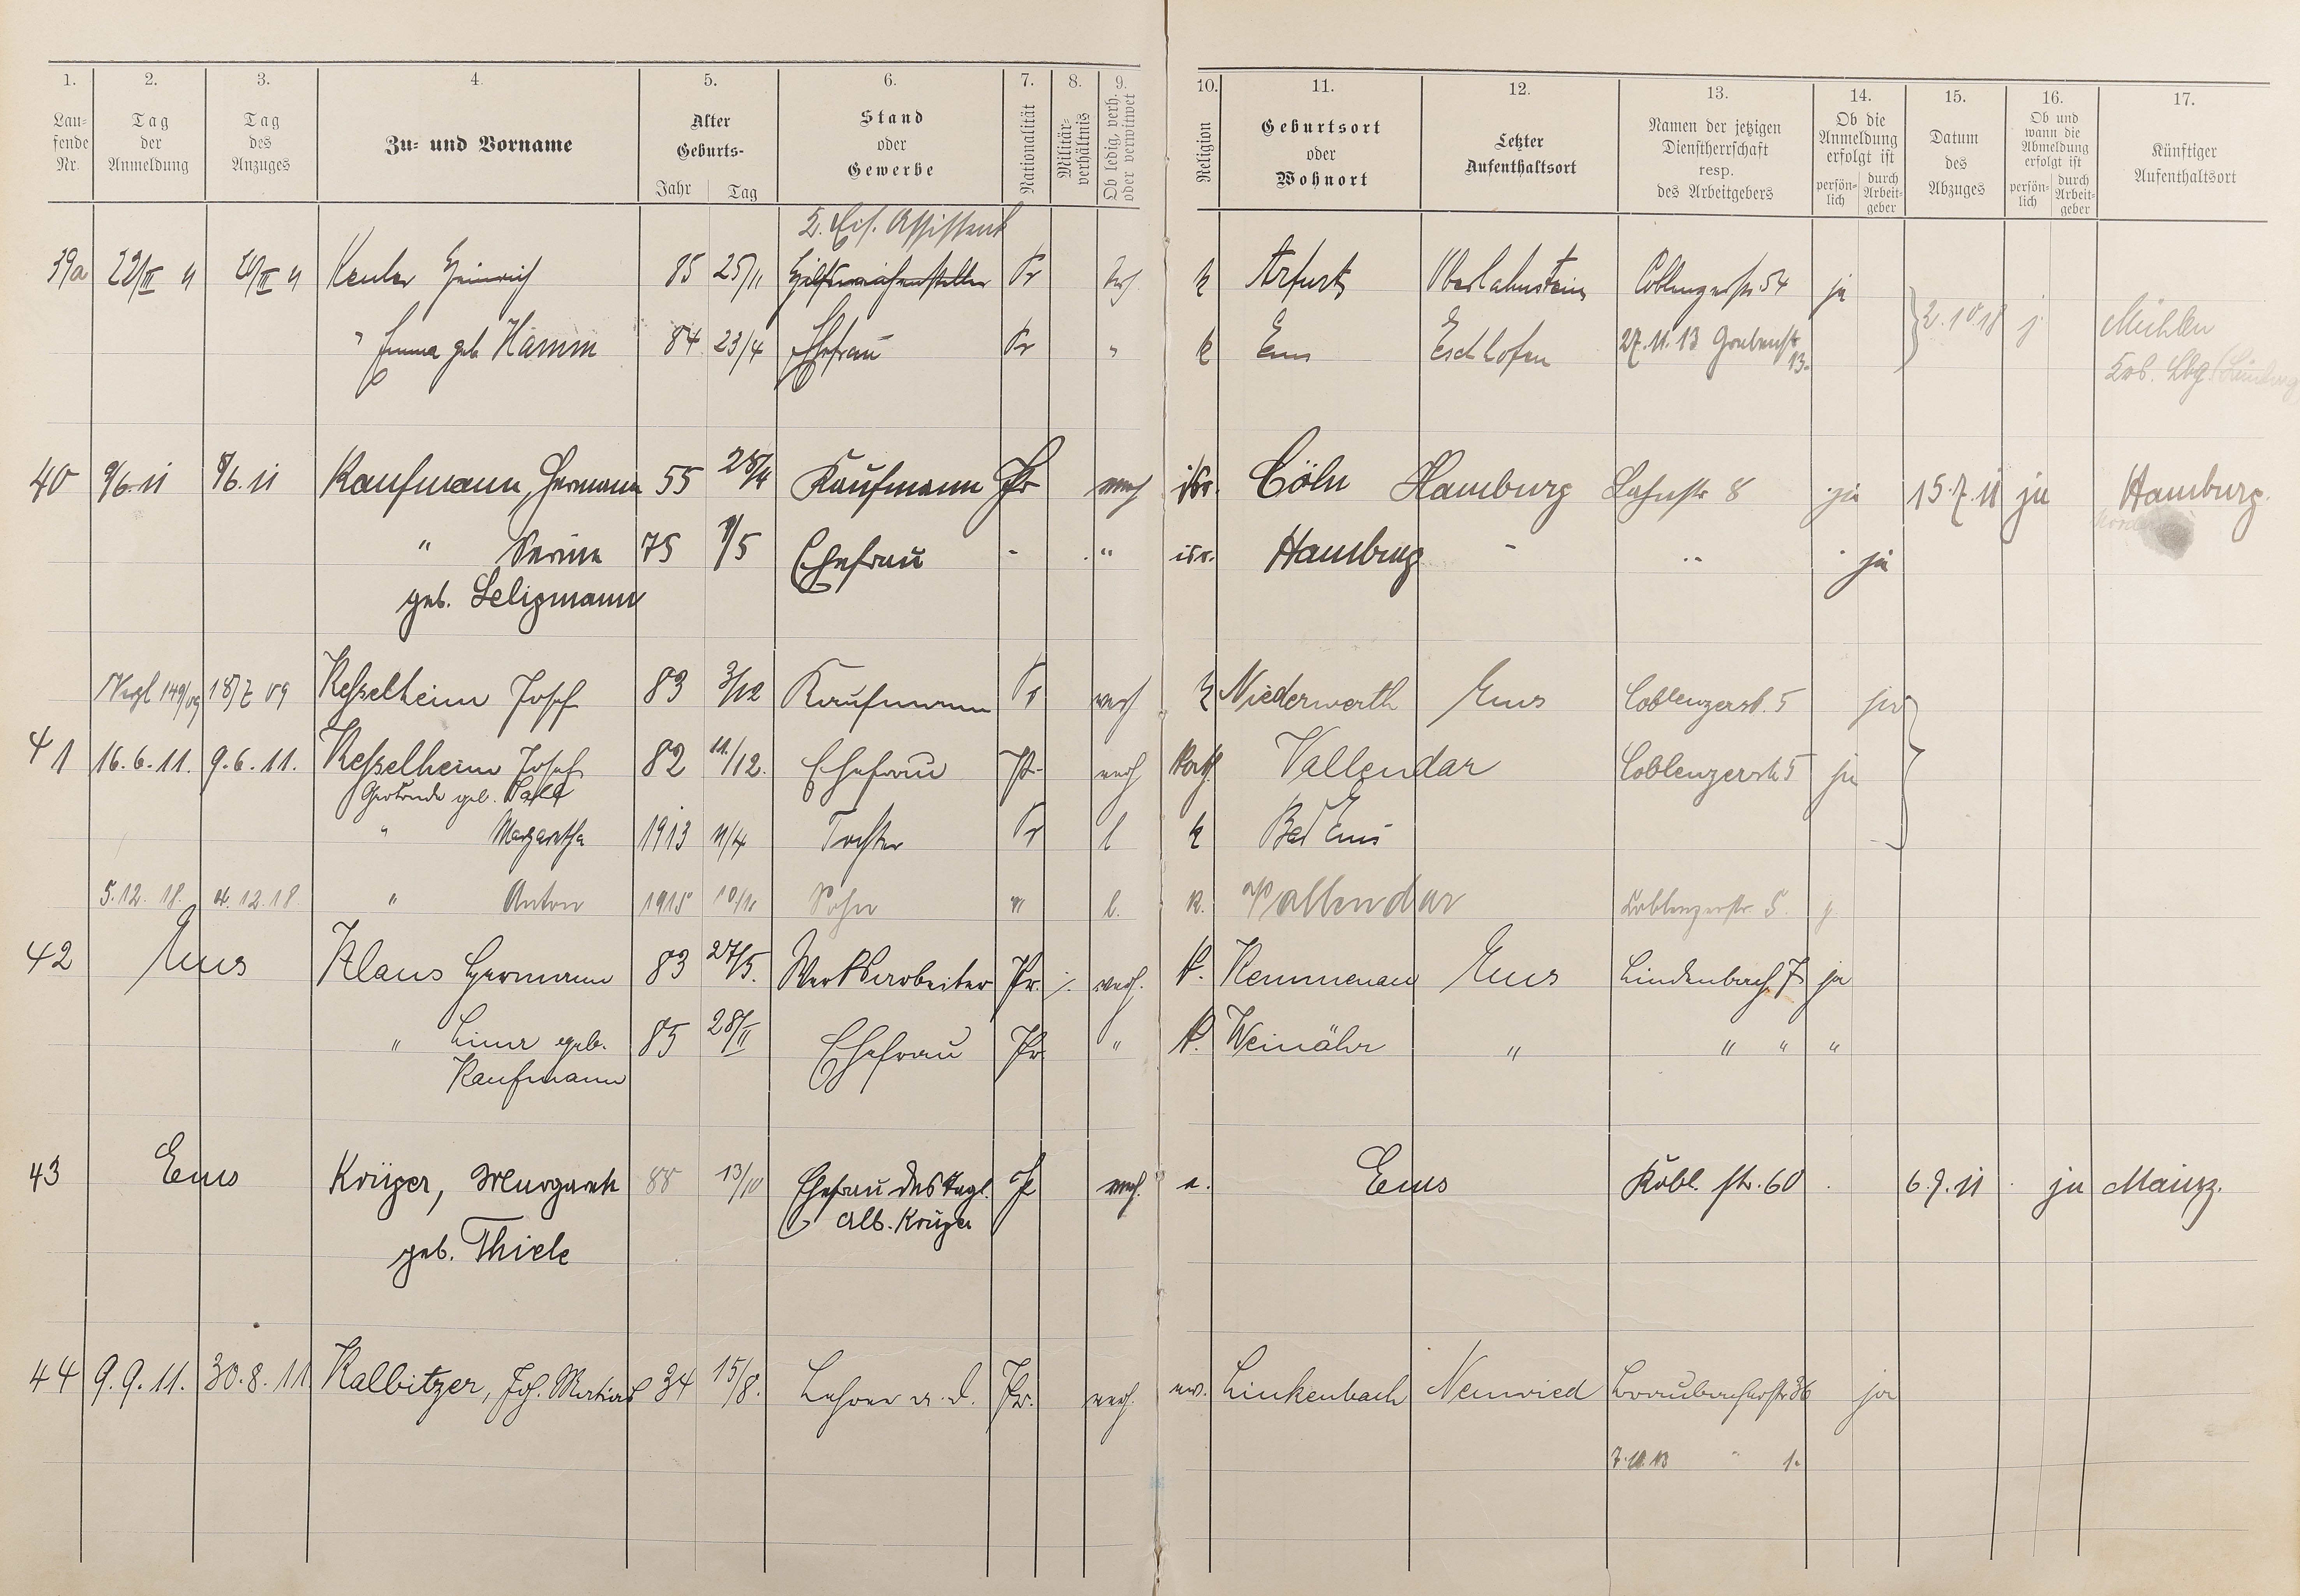 1. 2. 3. 4. 5. 6. 7. 8. 9. 10. 11. 12. 13. 14. 15. 16. 17.
Lau-
fende
Nr.
Tag
der
Anmeldung
Tag
des
Anzuges
Zu- und Vorname
Alter
Geburts-
Jahr Tag
Stand
oder
Gewerbe
Nationalität
Militär-
verhältnis
Ob ledig, verh.
oder verwitwet
Religion
Geburtsort
oder
Wohnort
Letzter
Aufenthaltsort
Namen der jetzigen
Dienstherrschaft
resp.
des Arbeitgebers
Ob die
Anmeldung
erfolgt ist
persön-
lich
durch
Arbeit-
geber
Datum
des
Abzuges
Ob und
wann die
Abmeldung
erfolgt ist
persön-
lich
durch
Arbeit-
geber
Künftiger
Aufenthaltsort
Eis. Assistent
39a Heinrich 85 25/11 Hilfsweichensteller Pr k Arfurt Oberlahnstein Coblenzerstr 54 ja
" Emma geb Hamm 84 23/4 Ehefrau Pr " k Ems Eschhofen 27.11.13 Grabenstr 13. 2.10.18 j Mühlen
40 9/6.11 8/6.11 Kaufmann, Hermann 55 28/4 Kaufmann Pr verh isr. Cöln Hamburg Lahnstr 8 ja 15.7.11 ja Hamburg.
" 75 9/5 Ehefrau - " isr. Hamburg - " ja
geb. Seligmann
149/09 18/7 09 Kesselheim Josef 83 3/12 Kaufmann Pr verh k Niederwerth Ems Coblenzerst. 5 ja
41 16.6.11. 9.6.11. Kesselheim Josef 82 11./12. Ehefrau Pr verh Kath. Vallendar Coblenzerstr 5 ja
Gertrude geb.
" Margaretha 1913 11/4 Tochter Pr l k Bad Ems
5.12.18. 4.12.18. " Anton 1915 10/11 Sohn " l. k. Vallendar Koblenzerstr. 5. j
42 Ems Klaus Hermann 83 27/5. Werksarbeiter Pr. verh. k. Kemmenau Ems Lindenbach 7 ja
" Lina geb. 85 28/II Ehefrau Pr " k. Weinähr " " " "
Kaufmann
43 Ems Krüger, Margareth 88 13/10 Ehefrau des Tagl. Pr verh. e. Ems Kobl. str. 60 6.9.11 ja Mainz.
Alb. Krüger
geb. Thiele
44 9.9.11. 30.8.11. Kalbitzer, Joh. Mathias 34 15/8. Lehrer a. D. Pr. verh. ev. Linkenbach Neuwied Braubacherstr 36 ja
" 1.